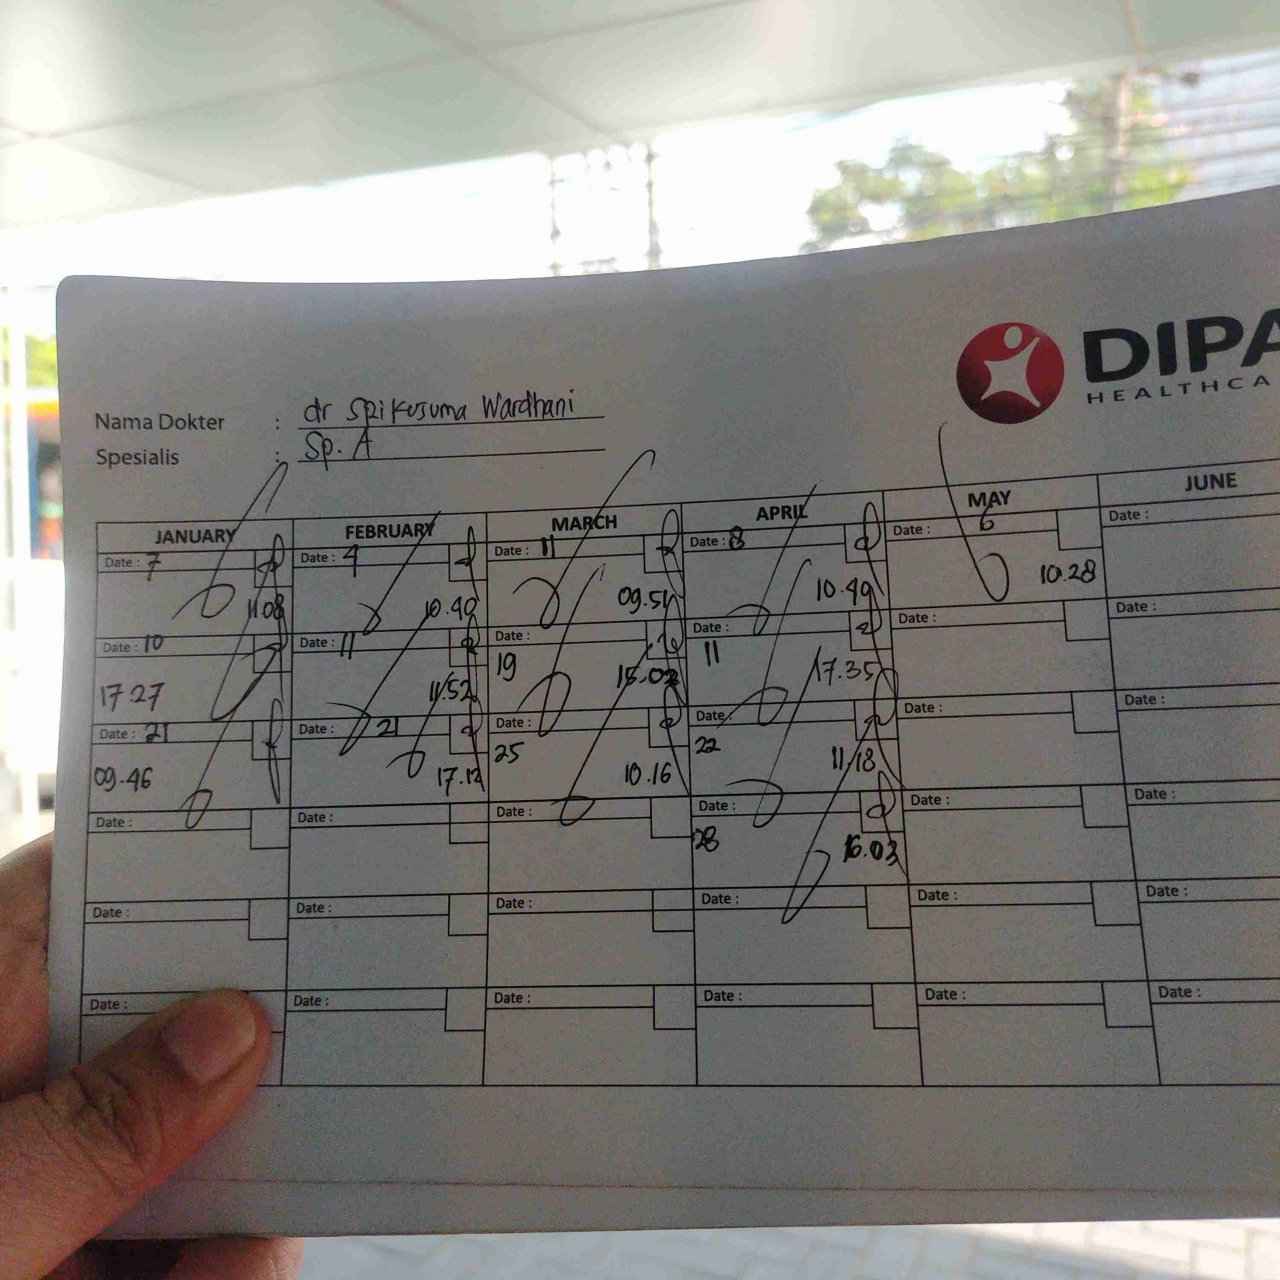 DIPA
HEALTHCA
Nama Dokter : dr Spikusuma Wardhani
Spesialis : Sp. A
JANUARY FEBRUARY MARCH APRIL MAY JUNE
Date : 7 Date : 4 Date : 11 Date : 8 Date : 6 Date :
11.08 10.40 09.51 10.49 10.28
Date : 10 Date : 11 Date : 19 Date : 11 Date : Date :
17.27 11.52 15.02 17.35
Date : 21 Date : 21 Date : 25 Date : 22 Date : Date :
09.46 17.12 10.16 11.18
Date : Date : Date : Date : 28 Date : Date :
16.03
Date : Date : Date : Date : Date : Date :
Date : Date : Date : Date : Date : Date :